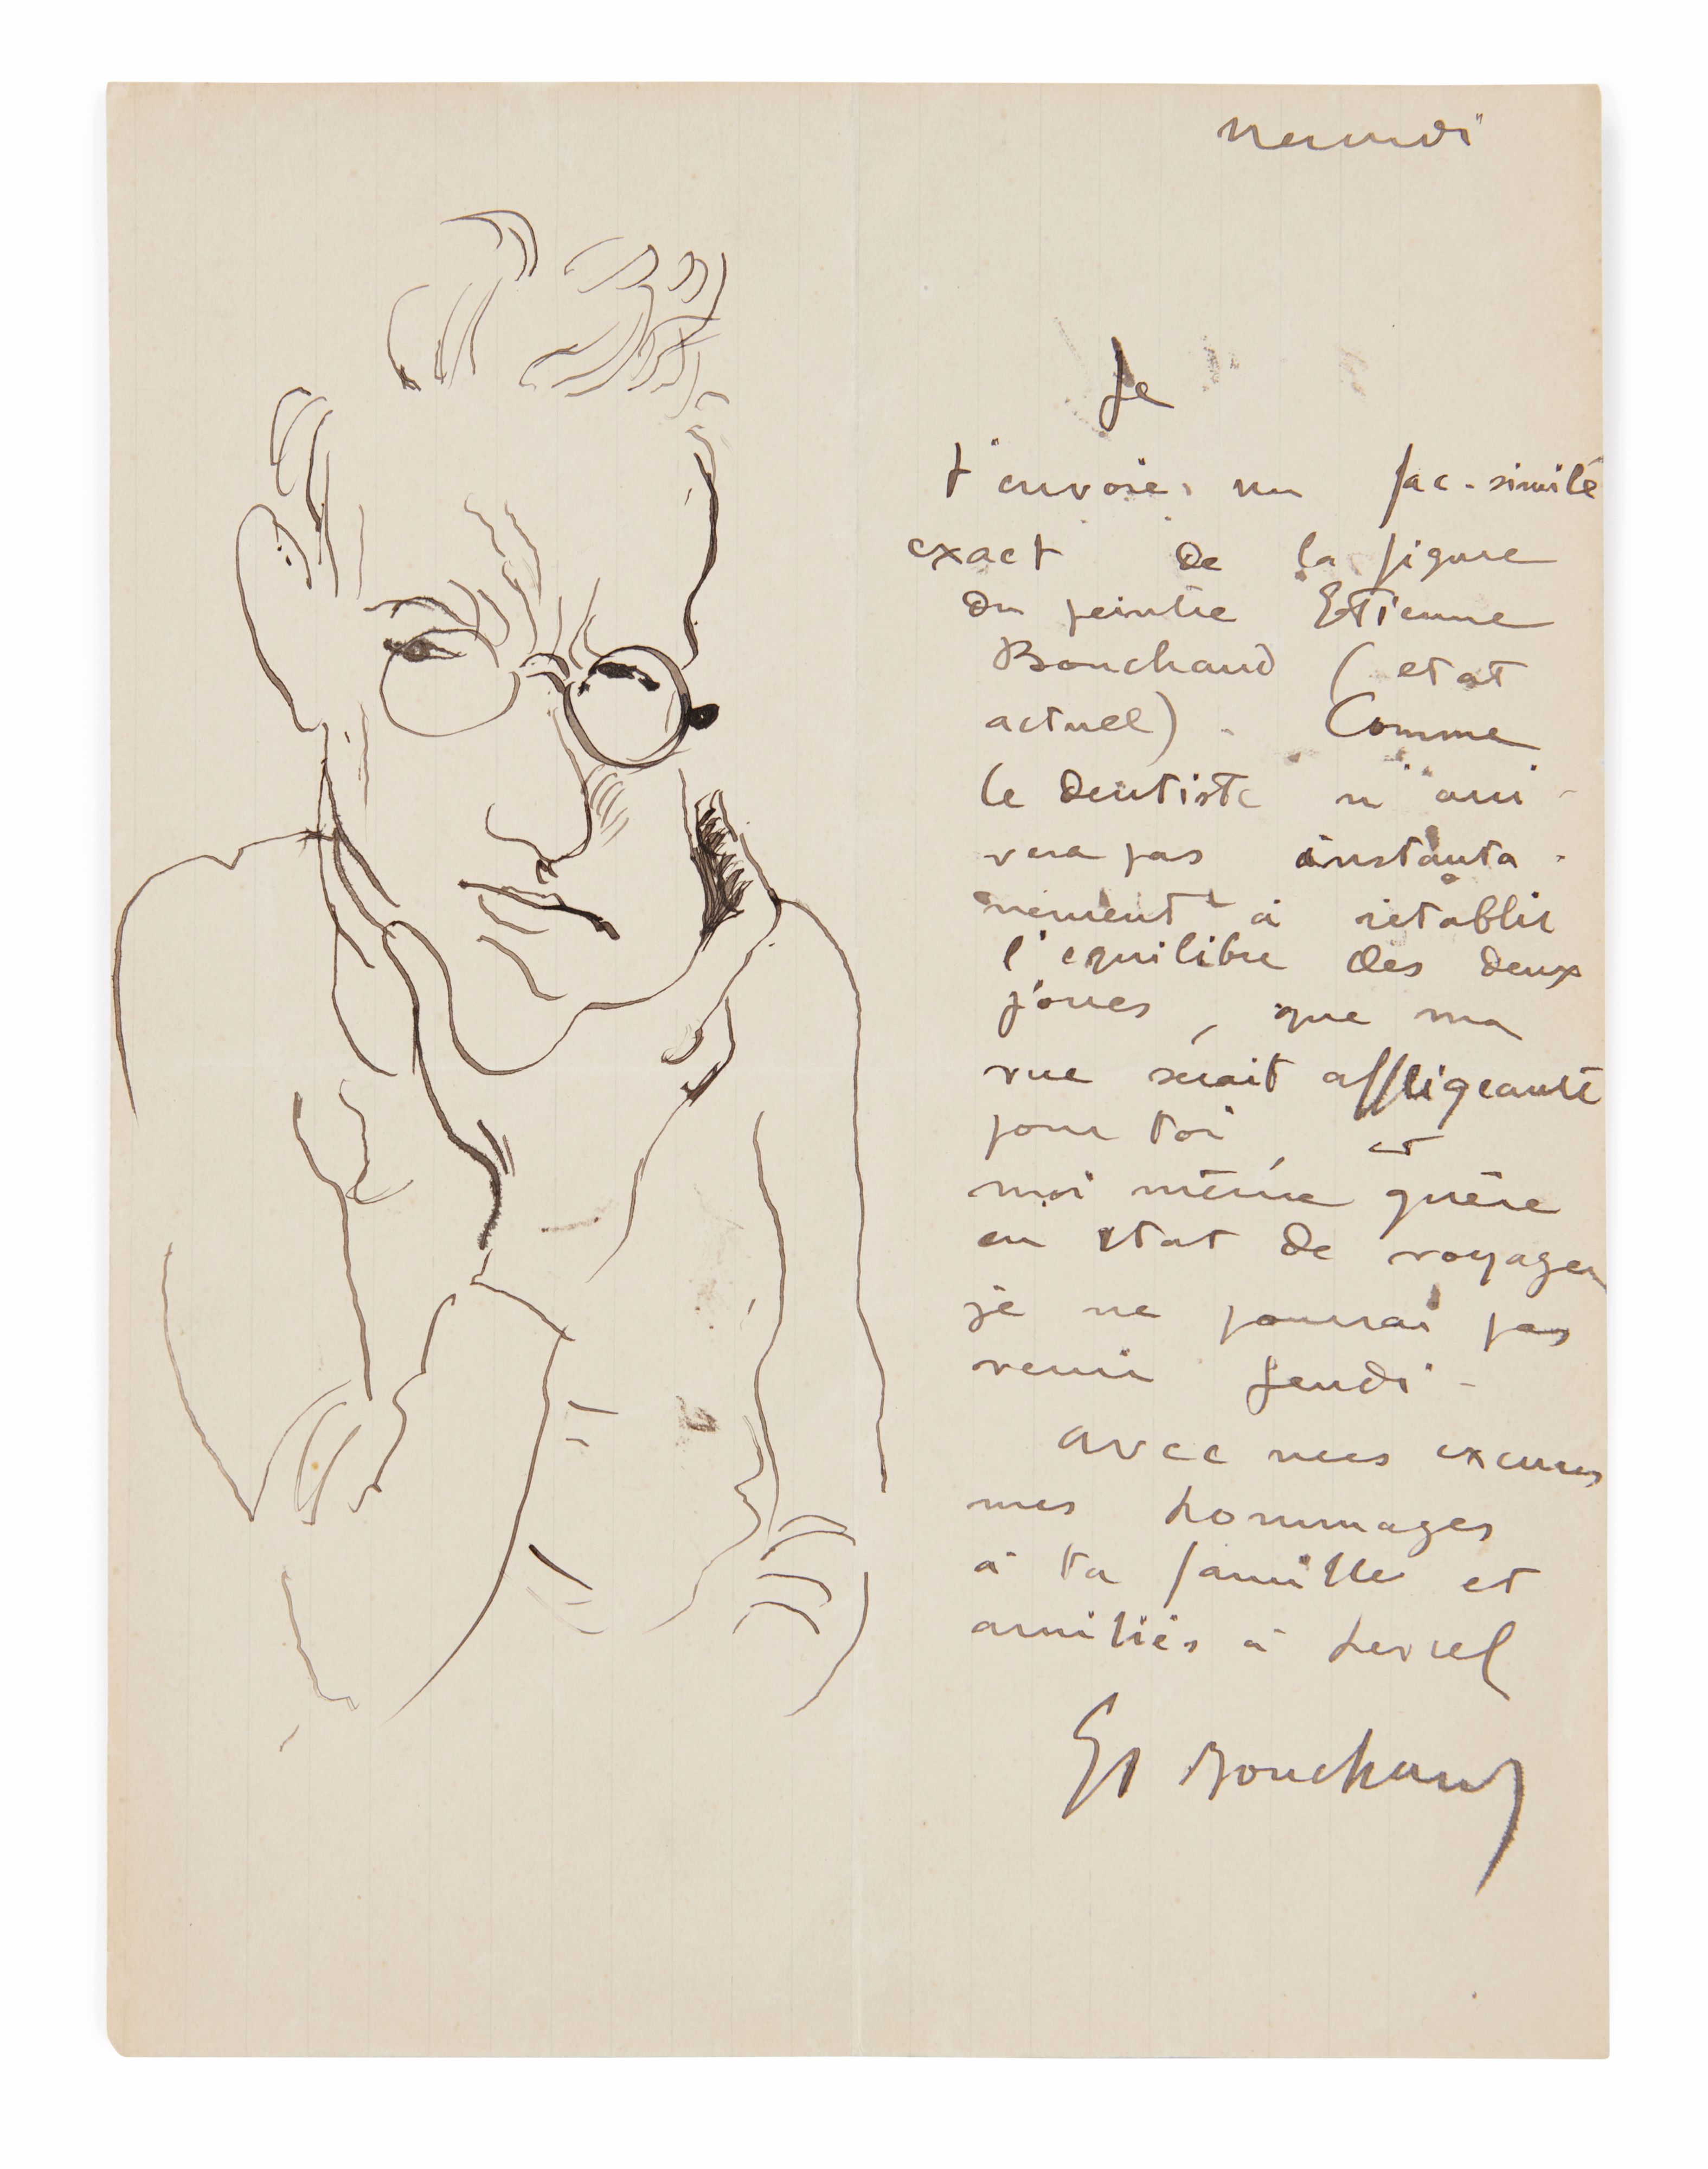 Je
t'envoie, un fac-similé
exact de la figure
du peintre Etienne
Bouchaud (etat
actuel). Comme
le dentiste n'arri-
vera pas instanta-
nement à rétablir
l'equilibre des deux
joues, que ma
vue serait affligeante
pour toi, et
moi même guère
en état de voyager
je ne pourrai pas
venir Jeudi -
avec mes excuses
mes hommages
à ta famille et
amitiés à
Et Bouchaud